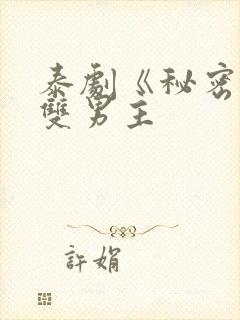 泰劇《秘密
雙男主
許娟